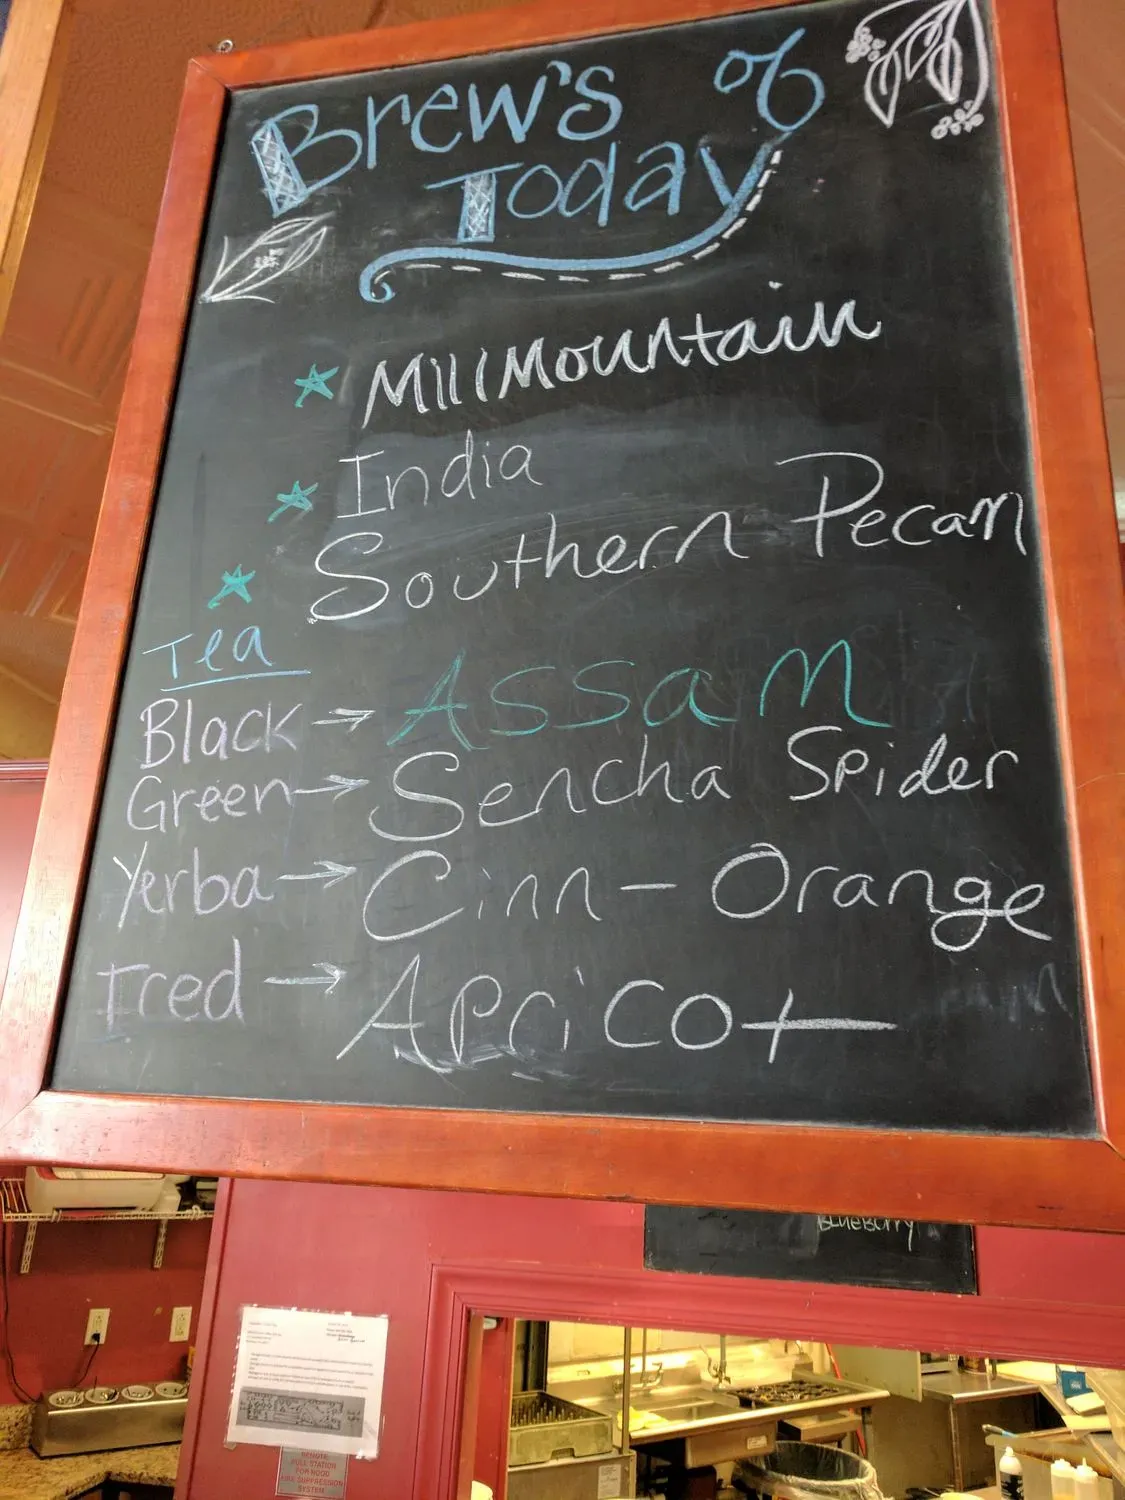 Brew's of
Today
Mill Mountain
India
Southern Pecan
Tea
Black → Assam
Green → Sencha Spider
Yerba → Cinn - Orange
Iced → Apricot
Blueberry
REMOTE
PULL STATION
FOR HOOD
FIRE SUPPRESSION
SYSTEM